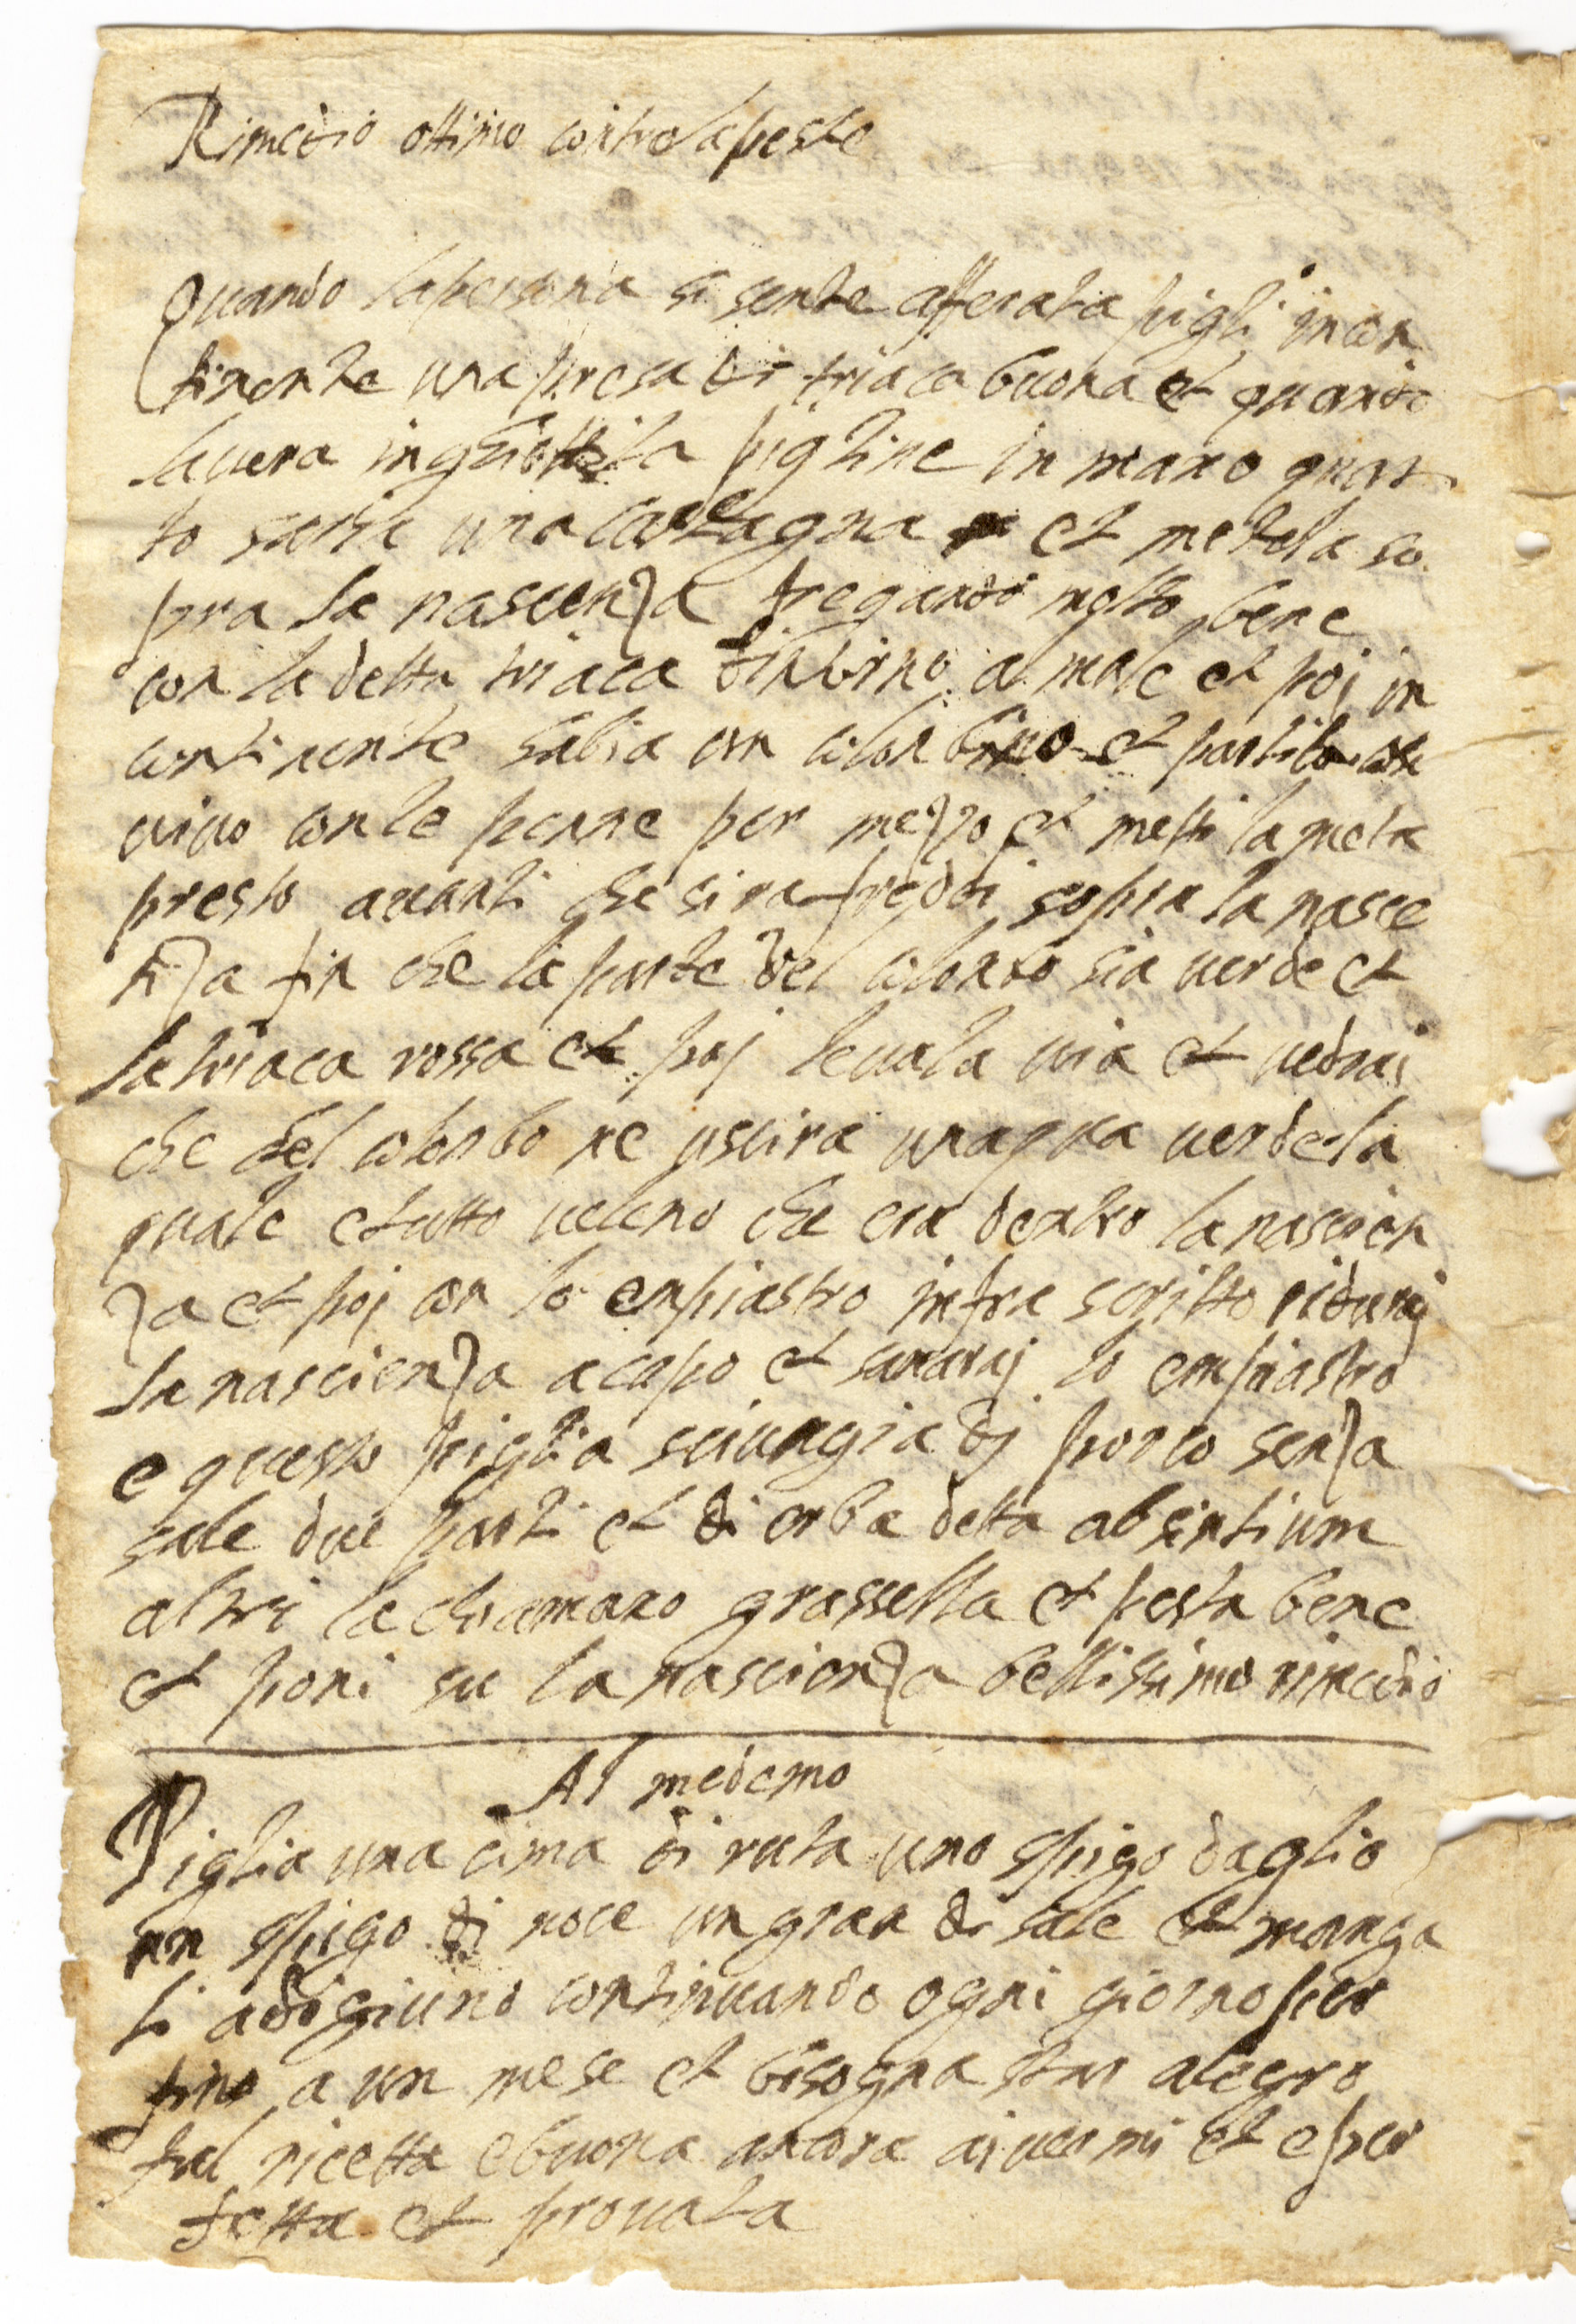 Rimedio ottimo contro la peste
Quando la persona si sente afferata pigli incon
tinente una presa di triaca buona et quando
lauera inghiottita pigline in mano quan
to saria una castagna et metela so
pra la nascenza fregando molto bene
con la detta triaca dintorno al male et poi in
continente habia un colonbino et partilo
uiuo con le penne per mezzo et metti la meta
presto auanti che si rafreddi sopra la nasce
nza fin che la parte del colonbo sia uerde et
la triaca rossa et poj leuala uia et uedraj
che del colonbo ne uscira unaqua uerde la
quale e tutto ueleno che era dentro la nascien
za et poj con lo enpiastro infra scritto riduraj
la nascienza a capo et sanaraj lo empiastro
e questo piglia sciungia dj porco senza
sale due parti et di erba detta absintium
altri la chiamano grassella et pesta bene
et poni su la nascienza bellissimo rimedio
Al medemo
Piglia una cima di ruta uno spigo daglio
un spigo di noce un gran di sale et mangia
li a digiuno continuando ogni giorno per
fino a un mese et bisogna star alegro
tal ricetta e buona ancora aj uermi et e per
fetta et prouata